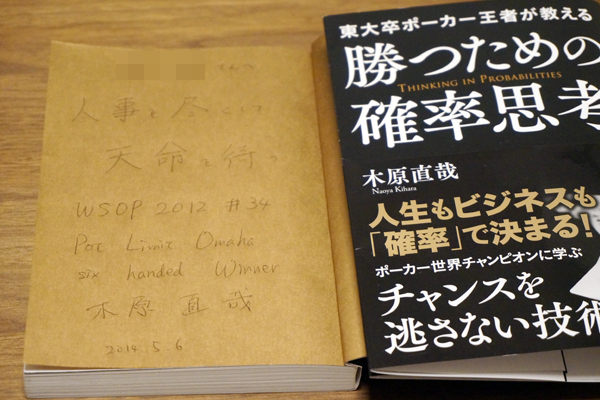 人事を尽くして
天命を待つ
WSOP 2012 #34
Pot Limit Omaha
six handed Winner
木原 直哉
2014.5.6
東大卒ポーカー王者が教える
勝つための
THINKING IN PROBABILITIES
確率思考
木原直哉
Naoya Kihara
人生もビジネスも
「確率」で決まる!
ポーカー世界チャンピオンに学ぶ
チャンスを
逃さない技術